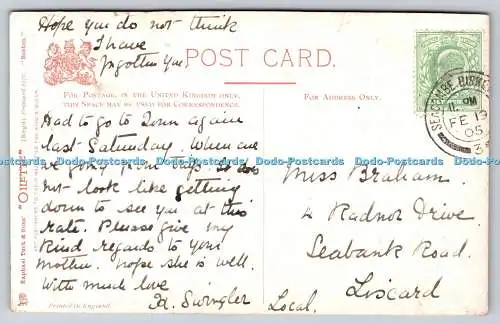 Hope you do not think
I have
forgotten you
POST CARD.
FOR POSTAGE, IN THE UNITED KINGDOM ONLY,
THIS SPACE MAY BE USED FOR CORRESPONDENCE.
FOR ADDRESS ONLY.
Had to go to Town again
last Saturday. When are
we going
not look like getting
down to see you at this
rate. Please give my
kind regards to your
Mother. hope she is well.
With much love
H. Swingler
Printed in England.
Raphael Tuck & Sons' "OILETTE"
SEACOMBE BIRKE
PM
FE 13
05
3
Miss Braham.
4 Radnor Drive.
Seabank Road.
Liscard
Local.
Dodo-Postcards